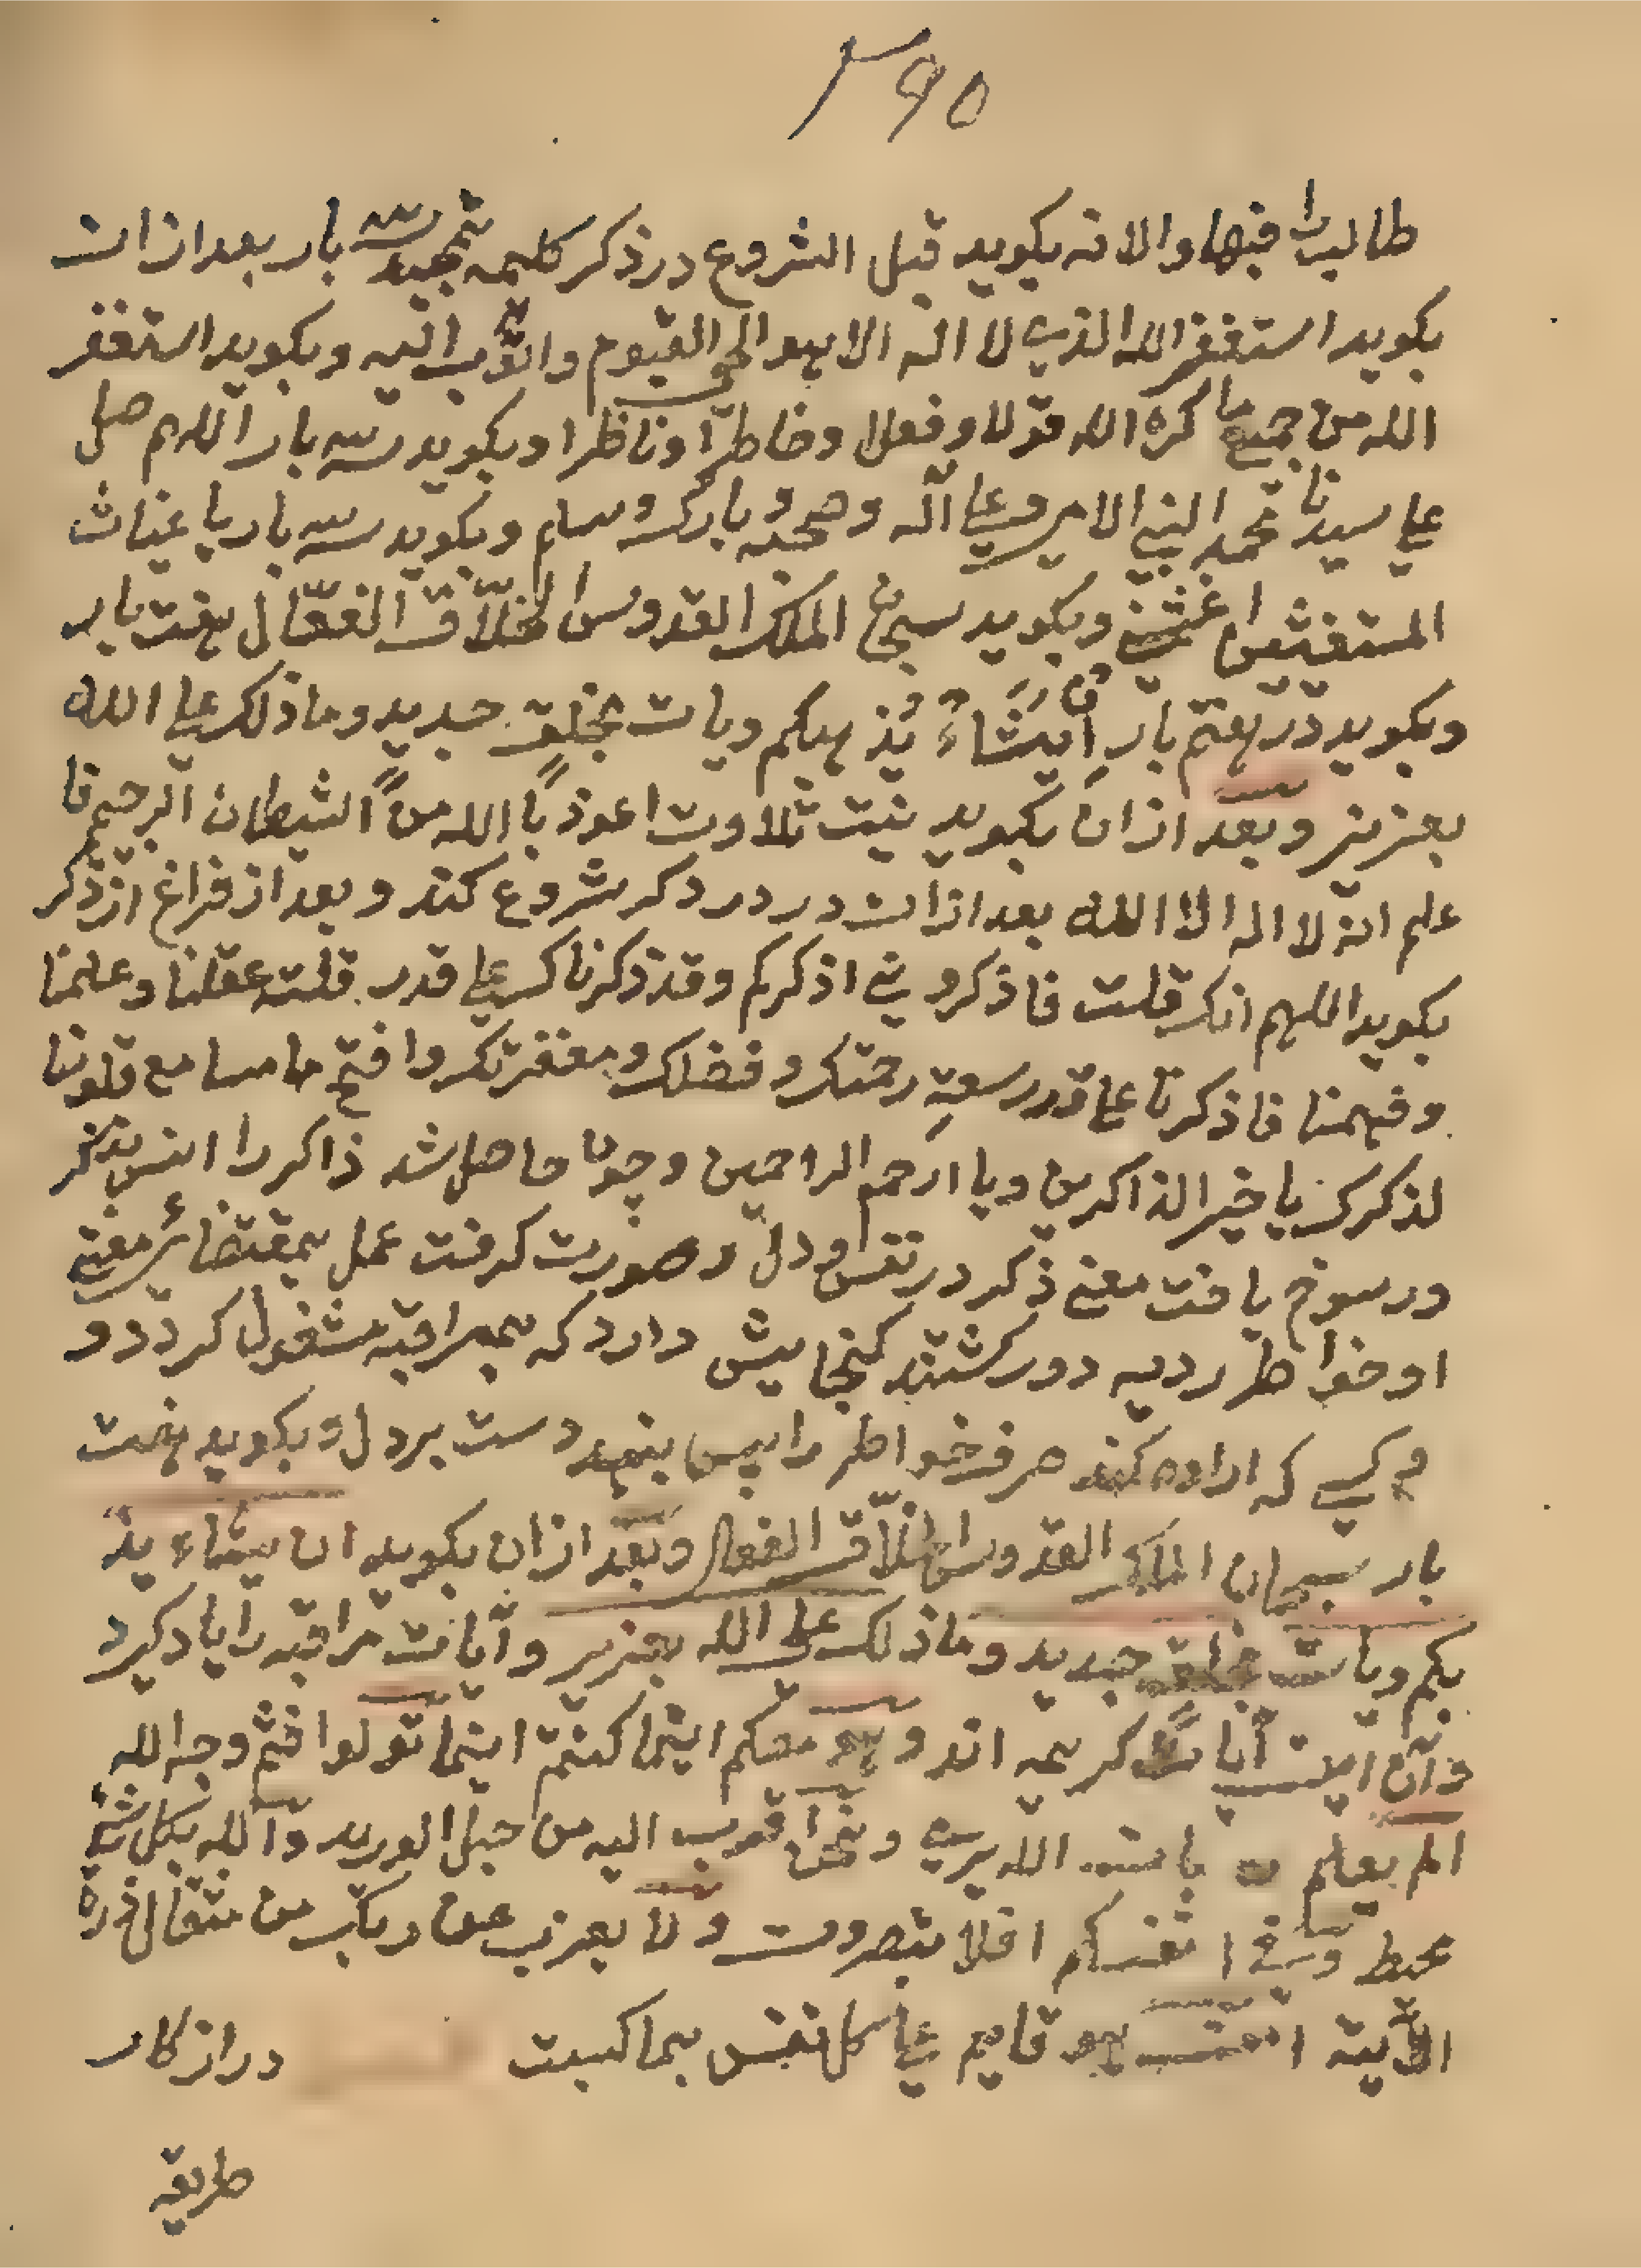 ۳۹۵
طالب را فبها والا نه بکوید قبل الشروع در ذکر کلیمه تمجید سه بار بعد ازان
بکوید استغفر الله الذی لا اله الا هو الحی القیوم واتوب الیه وبکوید استغفر
الله من جمیع ما کره الله قولا وفعلا وخاطرا وناظرا وبکوید سه بار اللهم صل
علی سیدنا محمد النبی الامی وعلی آله وصحبه وبارک وسلم وبکوید سه بار یا غیاث
المستغیثین اغثنی وبکوید سبحان الملک القدوس الخلّاق الفعّال هفت بار
وبکوید در هفتم بار اِن یَشَاءُ یُذهبکم ویات بخلق جدید وما ذلک علی الله
بعزیز وبعد ازان بکوید بنیت تلاوت اعوذ باالله من الشیطان الرجیم فا
علم انه لا اله الا الله بعد ازان در در ذکر شروع کند وبعد از فراغ از ذکر
بکوید اللهم انک قلت فاذکرونی اذکرکم وقد ذکرناک علی قدر قلت عقلنا وعلمنا
وفهمنا فاذکرنا علی قدر سعة رحمتک وفضلک ومغفرتک وافتح مسامع قلوبنا
لذکرک یا خیر الذاکرین ویا ارحم الراحمین وچون حاصل شد ذاکر را انس بذکر
ورسوخ یافت معنی ذکر در نفس ودل وصورت کرفت عمل بمقتضائی معنی
او خواطر ردیه دور کشتند کنجایش دارد که بمراقبه مشغول کردد و
هر کسی که اراده کند صرف خواطر را پس بنهد دست بر دل وبکوید هفت
بار سبحان الملک القدوس الخلّاق الفعال وبعد ازان بکوید ان یشاء یذ
هبکم ویات بخلق جدید وما ذلک علی الله بعزیز وآیات مراقبه را یاد کیرد
وآن این آیات کریمه اند وهو معکم اینما کنتم اینما تولوا فثم وجه الله
الم یعلم بان الله یری ونحن اقرب الیه من حبل الورید والله بکل شیٔ
محیط وفی انفسکم افلا تبصرون ولا یعزب عن ربک من مثقال ذرة
الآیة افمن هو قایم علی کل نفس بما کسبت در اذکار
طریقه